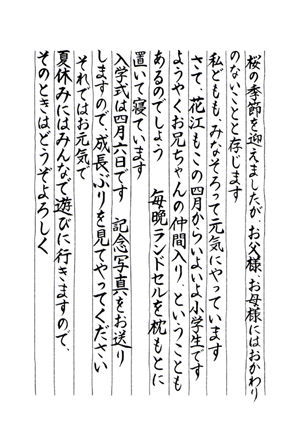 桜の季節を迎えましたが お父様、お母様にはおかわり
のないことと存じます
私どもも、みなそろって元気にやっています
さて、花江もこの四月からいよいよ小学生です
ようやくお兄ちゃんの仲間入り、ということも
あるのでしょう 毎晩ランドセルを枕もとに
置いて寝ています
入学式は四月六日です 記念写真をお送り
しますので、成長ぶりを見てやってください
それではお元気で
夏休みにはみんなで遊びに行きますので、
そのときはどうぞよろしく